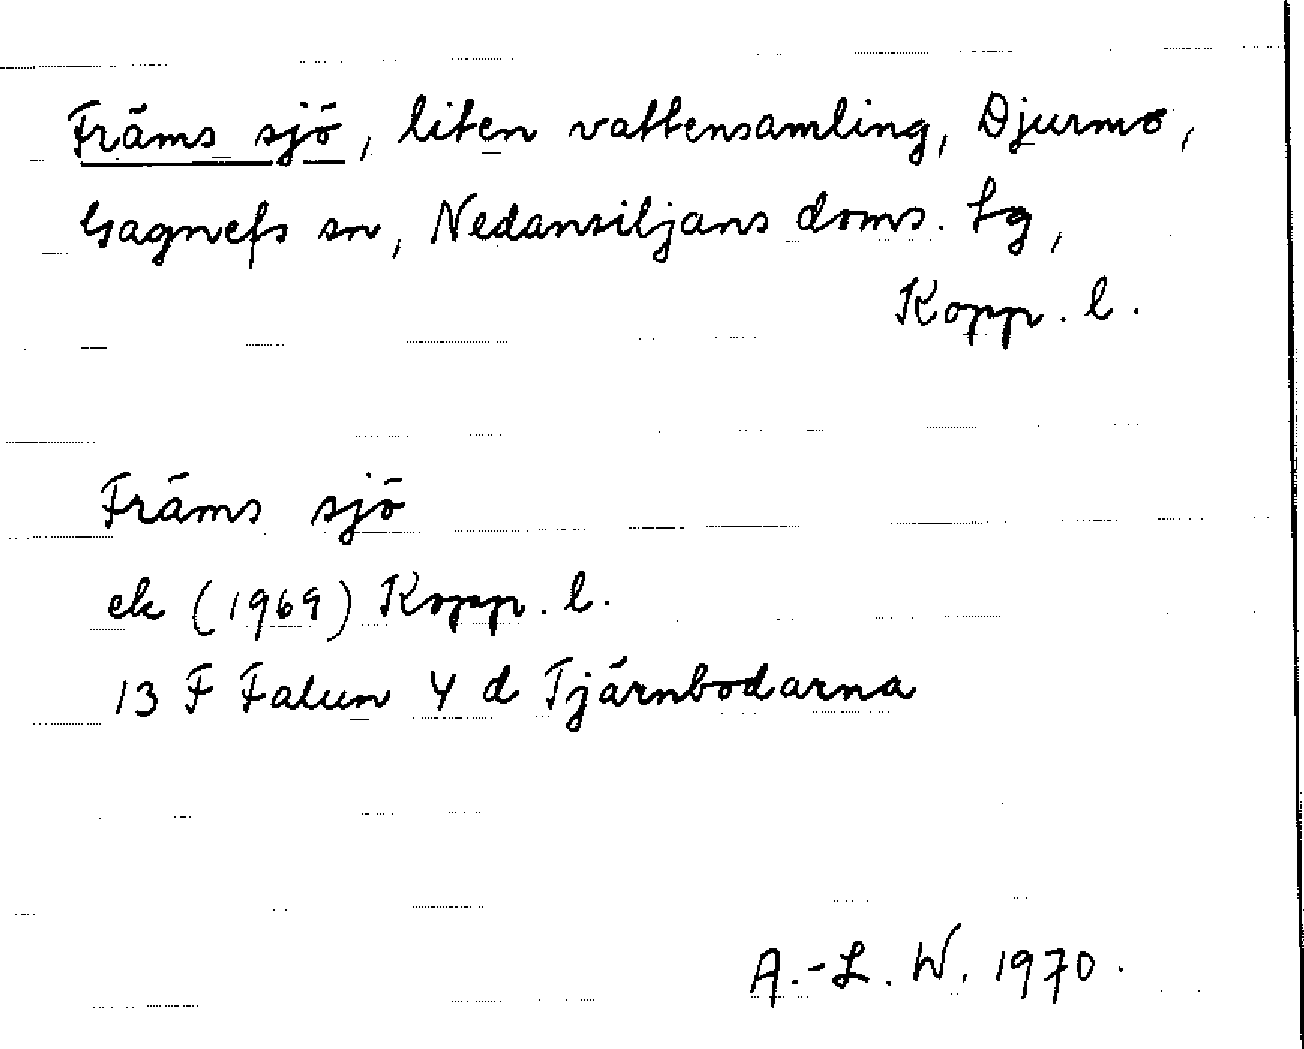 Främs sjö, liten vattensamling, Djurmo,
Gagnefs sn, Nedansiljans doms. tg,
Kopp. l.
Främs sjö
ek (1969) Kopp. l.
13 F Falun 4 d Tjärnbodarna
A.-L. W. 1970.